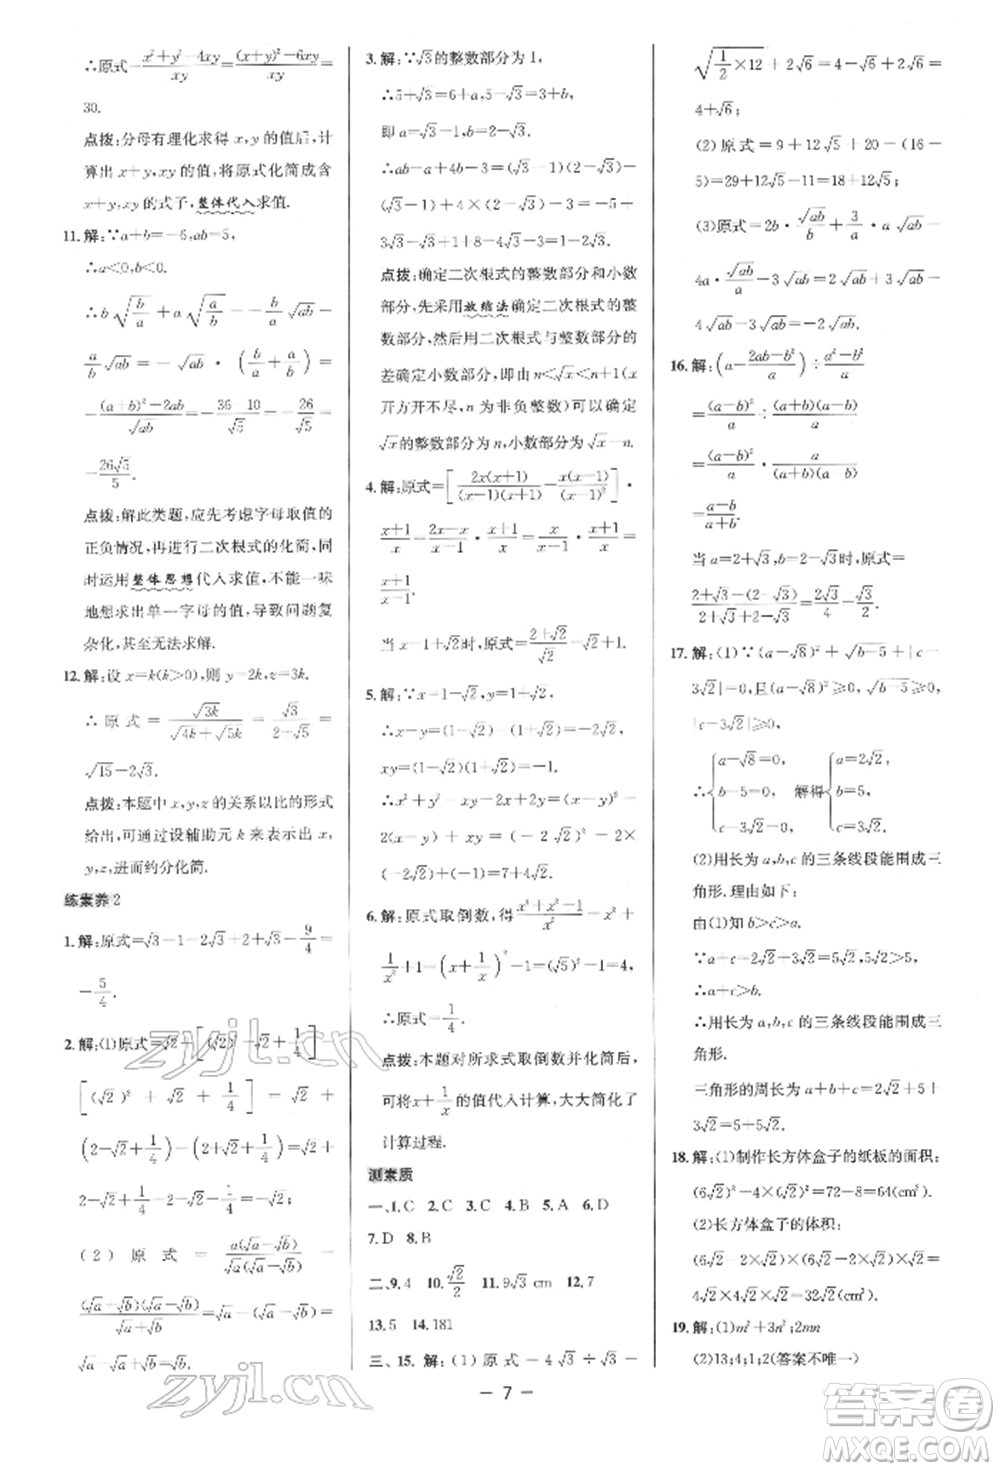 ∴原式=(x²+y²-4xy)/(xy)=((x+y)²-6xy)/(xy)=
30.
点拨:分母有理化求得 x,y 的值后,计
算出 x+y,xy 的值,将原式化简成含
x+y,xy 的式子,整体代入求值.
11.解:∵a+b=-6,ab=5,
∴a<0,b<0.
∴b√(b/a)+a√(a/b)=-(b/a)√ab-
(a/b)√ab=-√ab·(b/a+a/b)=
-((a+b)²-2ab)/√ab=-(36-10)/√5=
-26√5/5.
点拨:解此类题,应先考虑字母取值的
正负情况,再进行二次根式的化简,同
时运用整体思想代入求值,不能一味
地想求出单一字母的值,导致问题复
杂化,甚至无法求解.
12.解:设 x=k(k>0),则 y=2k,z=3k.
∴原式=√3k/(√4k+√5k)=√3/(2+√5)=
√15-2√3.
点拨:本题中 x,y,z 的关系以比的形式
给出,可通过设辅助元 k 来表示出 x,
y,z,进而约分化简.
练素养2
1.解:原式=√3-1-2√3+2+√3-9/4=
-5/4.
2.解:(1)原式=
[(√2)²+√2+√(1/4)]=√2+
(2-√2+√(1/4))-(2+√2+√(1/4))=√2+
2-√2+
(2)原式=a(√a-√b)/(√a(√a-√b))-
(√a+√b)(√a-√b)/(√a+√b)=√a-(√a-√b)=
√a-√a+√b=√b.
3.解:∵√3的整数部分为1,
∴5+√3=6+a,5-√3=3+b,
即 a=√3-1,b=2-√3.
∴ab-a+4b-3=(√3-1)(2-
√3)-(√3-1)+4(2-√3)-3=
3√3-5-√3+1+8-4√3-3=1-2√3.
点拨:确定二次根式的整数部分和小数
部分,先采用放缩法确定二次根式的整
数部分,然后用二次根式与整数部分
的差确定小数部分,即由 n<√x<n+1(x
开方开不尽,n 为非负整数)可以确定
√x的整数部分为 n,小数部分为√x-n.
4.解:原式=[2x(x+1)/((x-1)(x+1))-x(x-1)/(x-1)²]·
(x+1)/x=(2x-x)/(x-1)·(x+1)/x=x/(x-1)·(x+1)/x=
(x+1)/(x-1).
当 x=1+√2时,原式=(2+√2)/√2=√2+1.
5.解:∵x=1-√2,y=1+√2,
∴x-y=(1-√2)-(1+√2)=-2√2,
xy=(1-√2)(1+√2)=-1.
∴x²+y²-xy-2x+2y=(x-y)²-
2(x-y)+xy=(-2√2)²-2×
(-2√2)+(-1)=7+4√2.
6.解:原式取倒数,得(x⁴+x²+1)/x²=x²+
1/x²+1=(x+1/x)²-1=(√5)²-1=4,
∴原式=1/4.
点拨:本题对所求式取倒数并化简后,
可将x+1/x的值代入计算,大大简化了
计算过程.
测素质
一、1.C 2.C 3.C 4.A 5.A 6.D
7.D 8.B
二、9.4 10.√2/2 11.9√3 cm 12.7
13.5 14.181
三、15.解:(1)原式=4√3÷√3-
√(1/2×12)+2√6=4-√6+2√6=
4+√6.
(2)原式=9+12√5+20-(16-
5)=29+12√5-11=18+12√5;
(3)原式=2b·√ab/b+3/a·a√ab-
4a·√ab/a-3√ab=2√ab+3√ab-
4√ab-3√ab=-2√ab.
16.解:(a-(2ab-b²)/a)÷(a²-b²)/a
=(a-b)²/a÷(a+b)(a-b)/a
=(a-b)²/a·a/((a+b)(a-b))
=(a-b)/(a+b).
当 a=2+√3,b=2-√3时,原式=
(2+√3-(2-√3))/(2+√3+2-√3)=2√3/4=√3/2.
17.解:(1)∵(a-√8)²+√(b-5)+|c-
3√2|=0,且(a-√8)²≥0,√(b-5)≥0,
|c-3√2|≥0,
∴{a-√8=0, b-5=0, c-3√2=0, 解得{a=2√2, b=5, c=3√2.
(2)用长为 a,b,c 的三条线段能围成三
角形.理由如下:
由(1)知 b>c>a.
∵a+c=2√2+3√2=5√2>5,
∴a+c>b.
∴用长为 a,b,c 的三条线段能围成三
角形.
三角形的周长为 a+b+c=2√2+5+
3√2=5+5√2.
18.解:(1)制作长方体盒子的纸板的面积:
(6√2)²-4×(√2)²=72-8=64(cm²).
(2)长方体盒子的体积:
(6√2-2√2)(6√2-2√2)×√2=
4√2×4√2×√2=32√2(cm³).
19.解:(1)m²+3n²;2mn
(2)13;4;1;2(答案不唯一)
— 7 —
zyjl.cn
zyjl.cn
答案圈
MXQE.COM